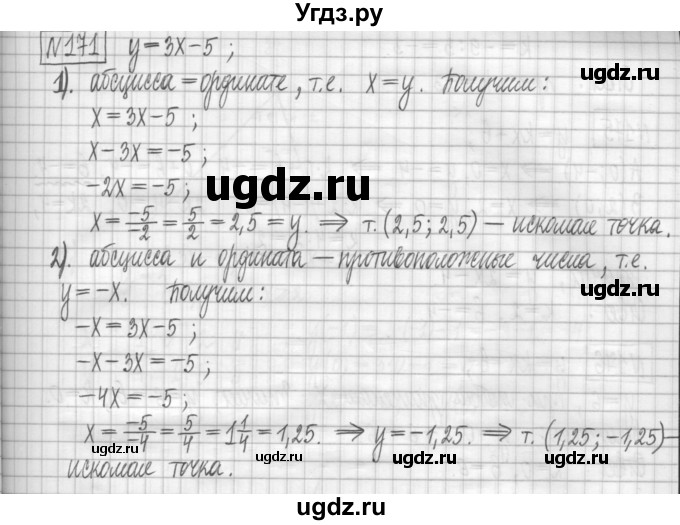 Угдз.ру
N171 y=3x-5 ;
ugdz.ru
1). абсцисса = ординате, т.е. x=y. Получим:
ugdz.ru
x=3x-5 ;
x-3x=-5;
ugdz.ru
-2x=-5;
ugdz.ru
x = -5/-2 = 5/2 = 2,5 = y. ⇒ т. (2,5; 2,5) – искомая точка.
2). абсцисса и ордината – противоположные числа, т.е.
ugdz.ru
ugdz.ru
y=-x. Получим:
-x=3x-5 ;
ugdz.ru
-x-3x=-5;
-4x=-5;
x = -5/-4 = 5/4 = 1 1/4 = 1,25. ⇒ y=-1,25. ⇒ т. (1,25; -1,25) –
ugdz.ru
искомая точка.
ugdz.ru
ugdz.ru
ugdz.ru